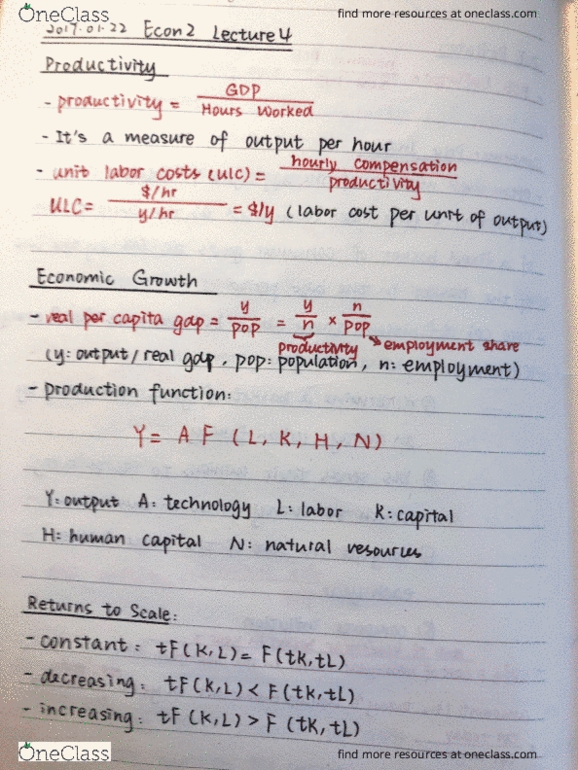 OneClass find more resources at oneclass.com
2017.01.22 Econ2 Lecture 4
Productivity
- productivity = GDP / Hours Worked
- It's a measure of output per hour
- unit labor costs (ULC) = hourly compensation / productivity
ULC = $/hr / y/hr = $/y (labor cost per unit of output)
Economic Growth
- real per capita gap = y/pop = y/n × n/pop
productivity employment share
(y: output/real gdp, pop: population, n: employment)
- production function:
Y = A F (L, K, H, N)
Y: output A: technology L: labor K: capital
H: human capital N: natural resources
Returns to Scale:
- constant: tF(K,L) = F(tK,tL)
- decreasing: tF(K,L) < F(tK,tL)
- increasing: tF(K,L) > F(tK,tL)
OneClass find more resources at oneclass.com